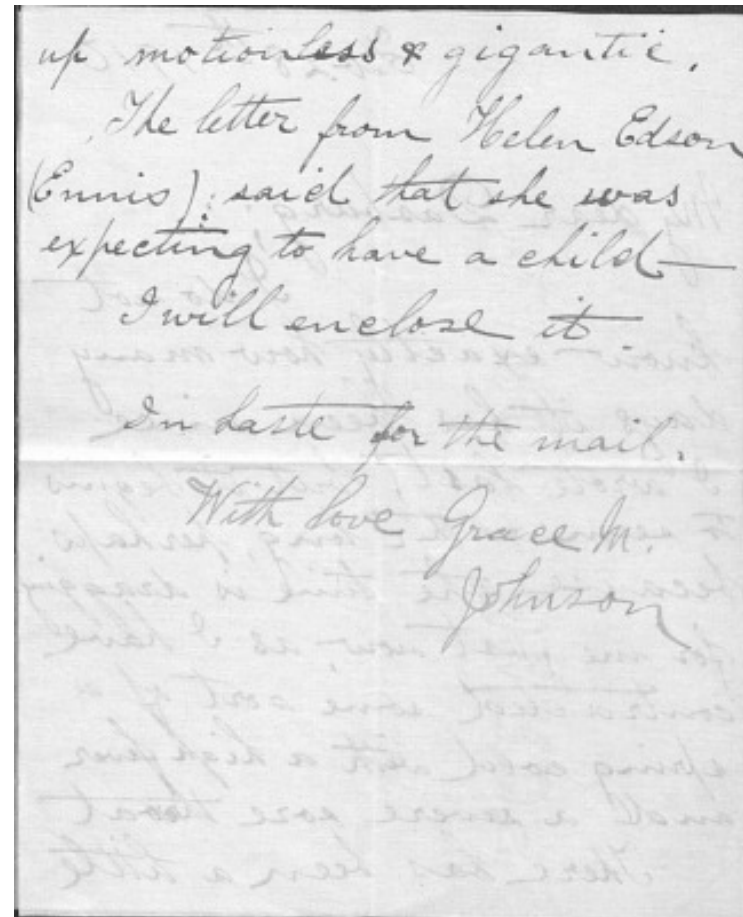 up motionless & gigantic.
The letter from Helen Edson
(Ennis); said that she was
expecting to have a child—
I will enclose it
In haste for the mail.
With love Grace M.
Johnson